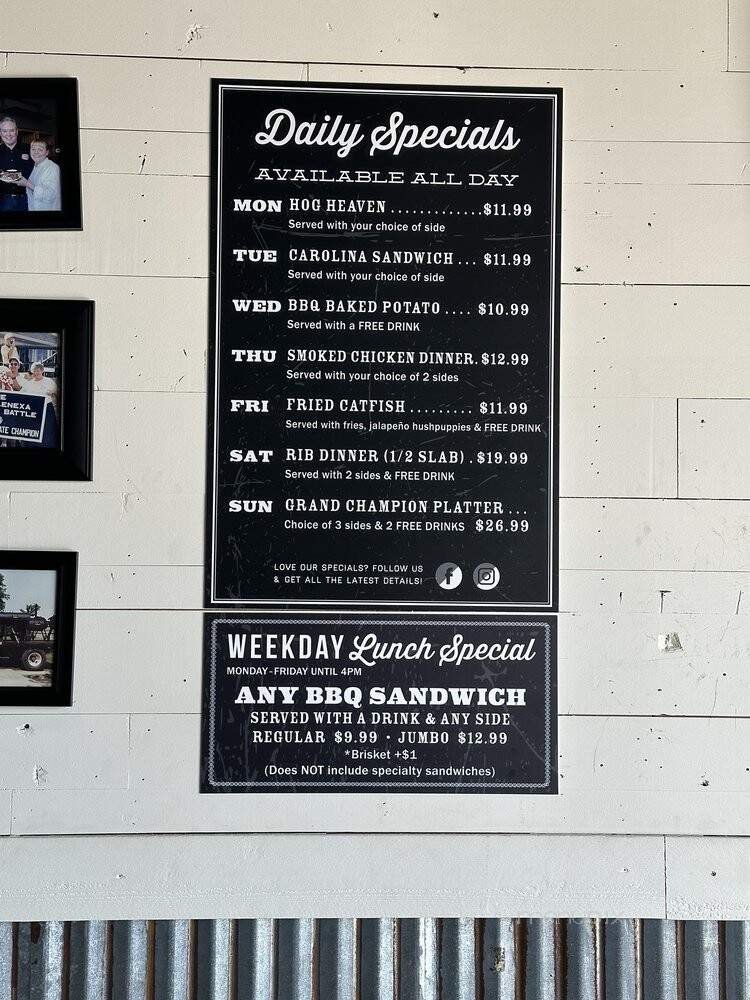 Daily Specials
AVAILABLE ALL DAY
MON HOG HEAVEN.............$11.99
Served with your choice of side
TUE CAROLINA SANDWICH... $11.99
Served with your choice of side
WED BBQ BAKED POTATO.... $10.99
Served with a FREE DRINK
THU SMOKED CHICKEN DINNER. $12.99
Served with your choice of 2 sides
FRI FRIED CATFISH ......... $11.99
Served with fries, jalapeño hushpuppies & FREE DRINK
SAT RIB DINNER (1/2 SLAB) . $19.99
Served with 2 sides & FREE DRINK
SUN GRAND CHAMPION PLATTER ...
Choice of 3 sides & 2 FREE DRINKS $26.99
LOVE OUR SPECIALS? FOLLOW US
& GET ALL THE LATEST DETAILS!
f
WEEKDAY Lunch Special
MONDAY-FRIDAY UNTIL 4PM
ANY BBQ SANDWICH
SERVED WITH A DRINK & ANY SIDE
REGULAR $9.99 • JUMBO $12.99
*Brisket +$1
(Does NOT include specialty sandwiches)
LENEXA
BATTLE
CHAMPION